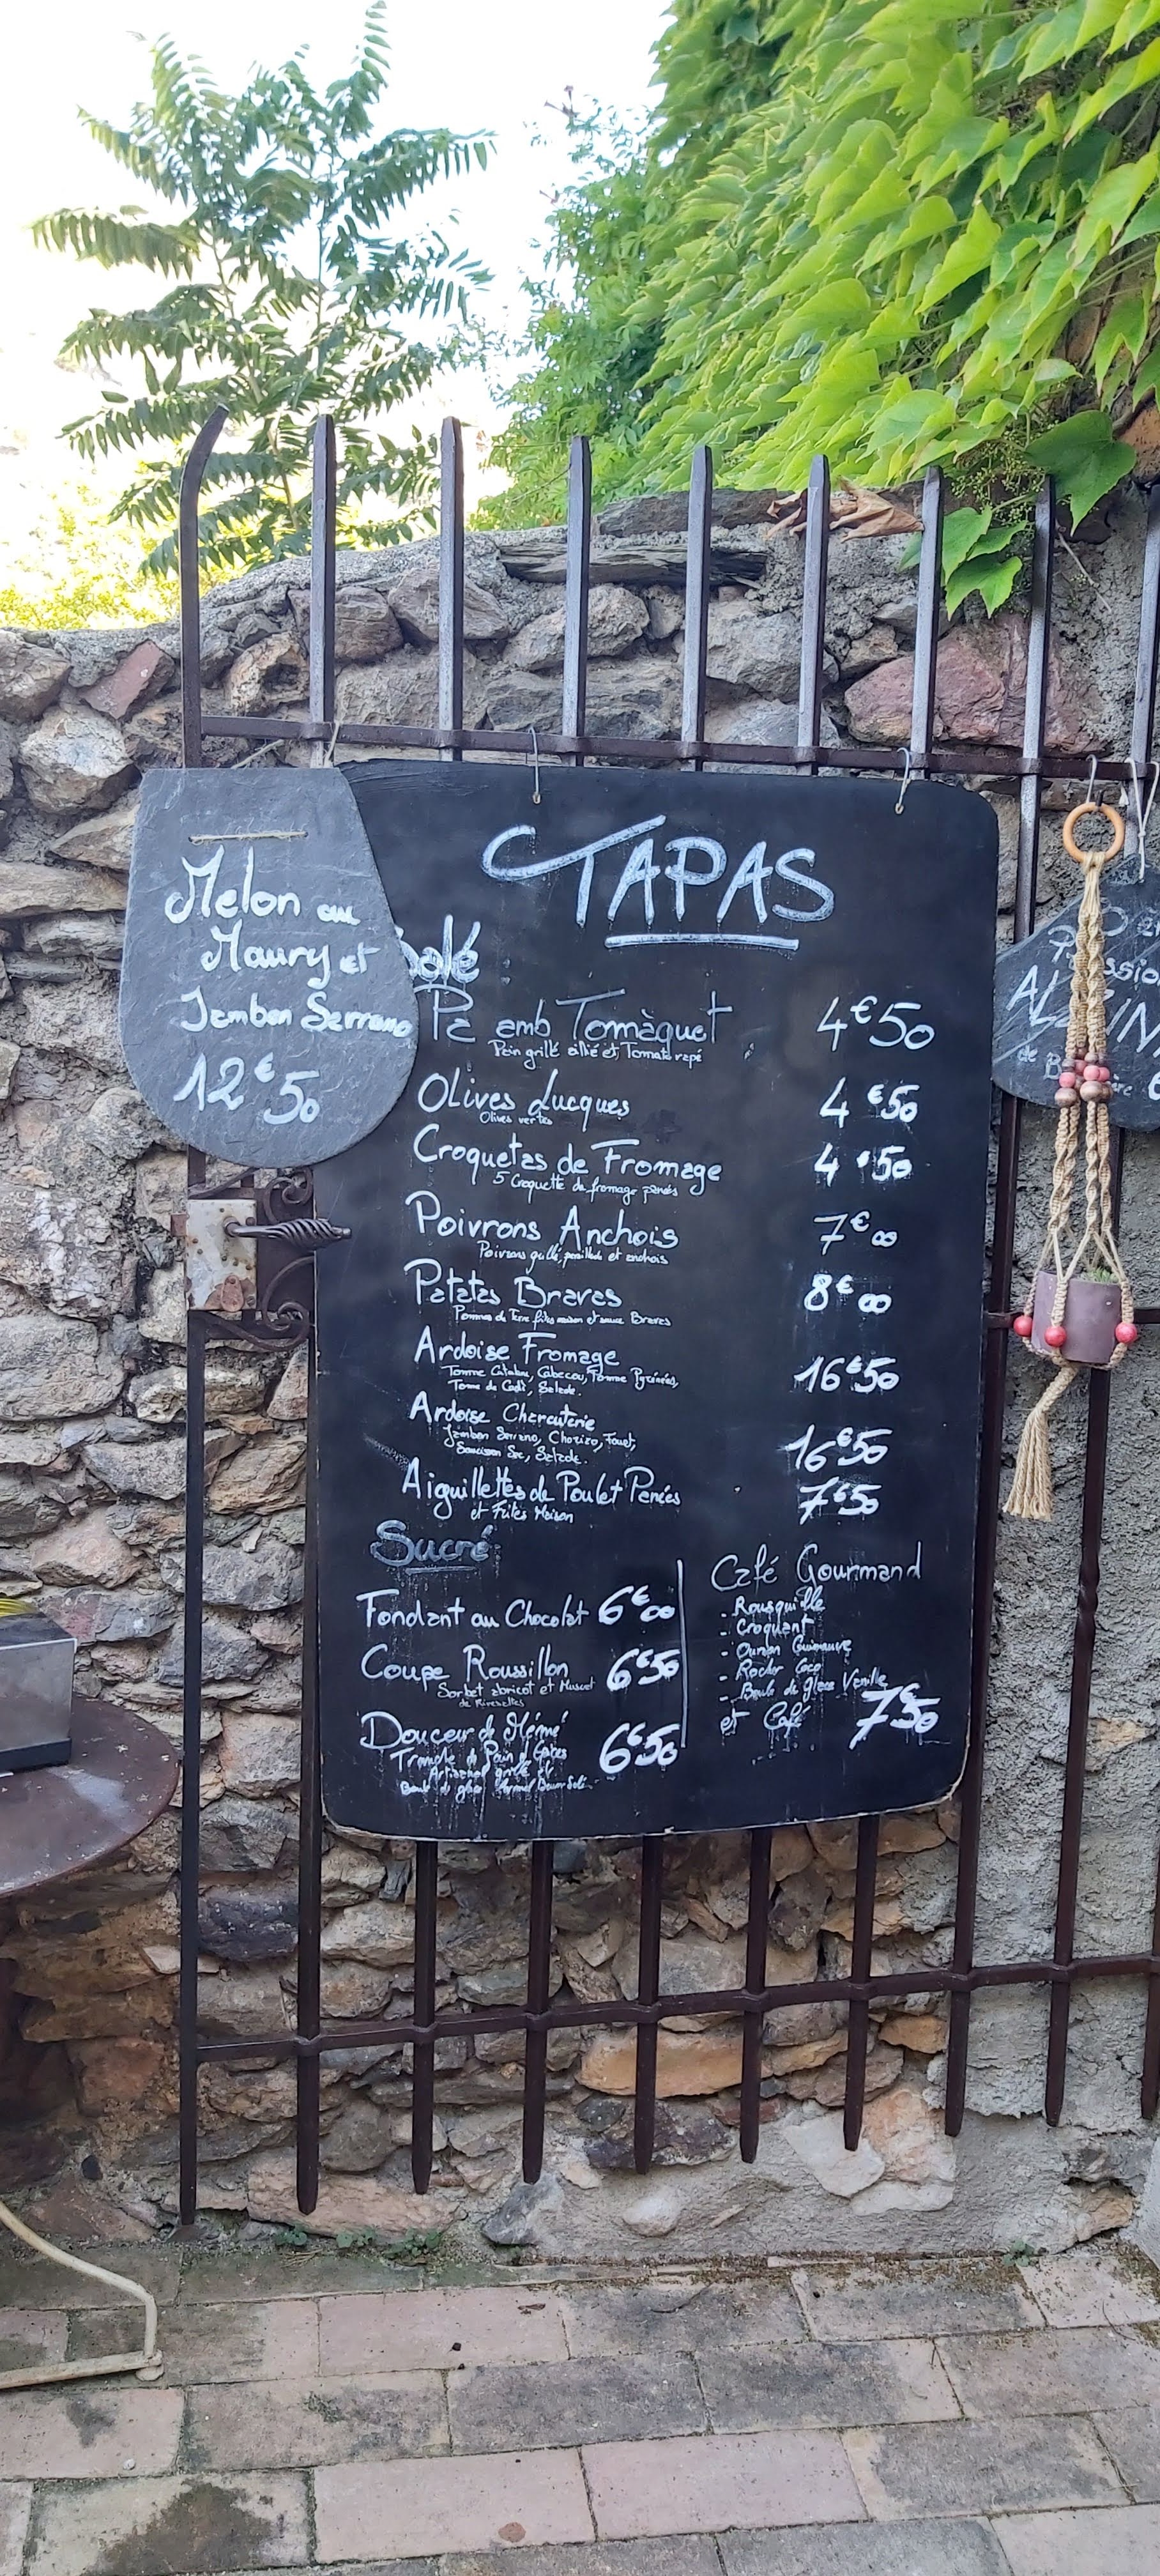 Melon au
Maury et
Jambon Serrano
12€50
TAPAS
Salé
Pa amb Tomàquet 4€50
Pain grillé aillé et Tomate rapé
Olives Lucques 4€50
Olives vertes
Croquetas de Fromage 4€50
5 Croquette de fromage panés
Poivrons Anchois 7€00
Poivrons grillé, persillade et anchois
Patatas Bravas 8€00
Pommes de Terre frites maison et sauce Bravas
Ardoise Fromage 16€50
Tomme Catalane, Cabecou, Tomme Pyrénées,
Tome de Cadi, Salade.
Ardoise Charcuterie 16€50
Jambon Serrano, Chorizo, Fouet,
Saucisson Sec, Salade.
Aiguillettes de Poulet Panées 7€50
et Frites Maison
Sucré
Fondant au Chocolat 6€00
Coupe Roussillon 6€50
Sorbet abricot et Muscat
de Rivesaltes
Douceur de Mémé 6€50
Tranche de Pain d'Epices
Artisanal grillé et
Boule de glace Caramel Beurre Salé
Café Gourmand
- Rousquille
- Croquant
- Ourson Guimauve
- Rocher Coco
- Boule de glace Vanille
et Café 7€50
de